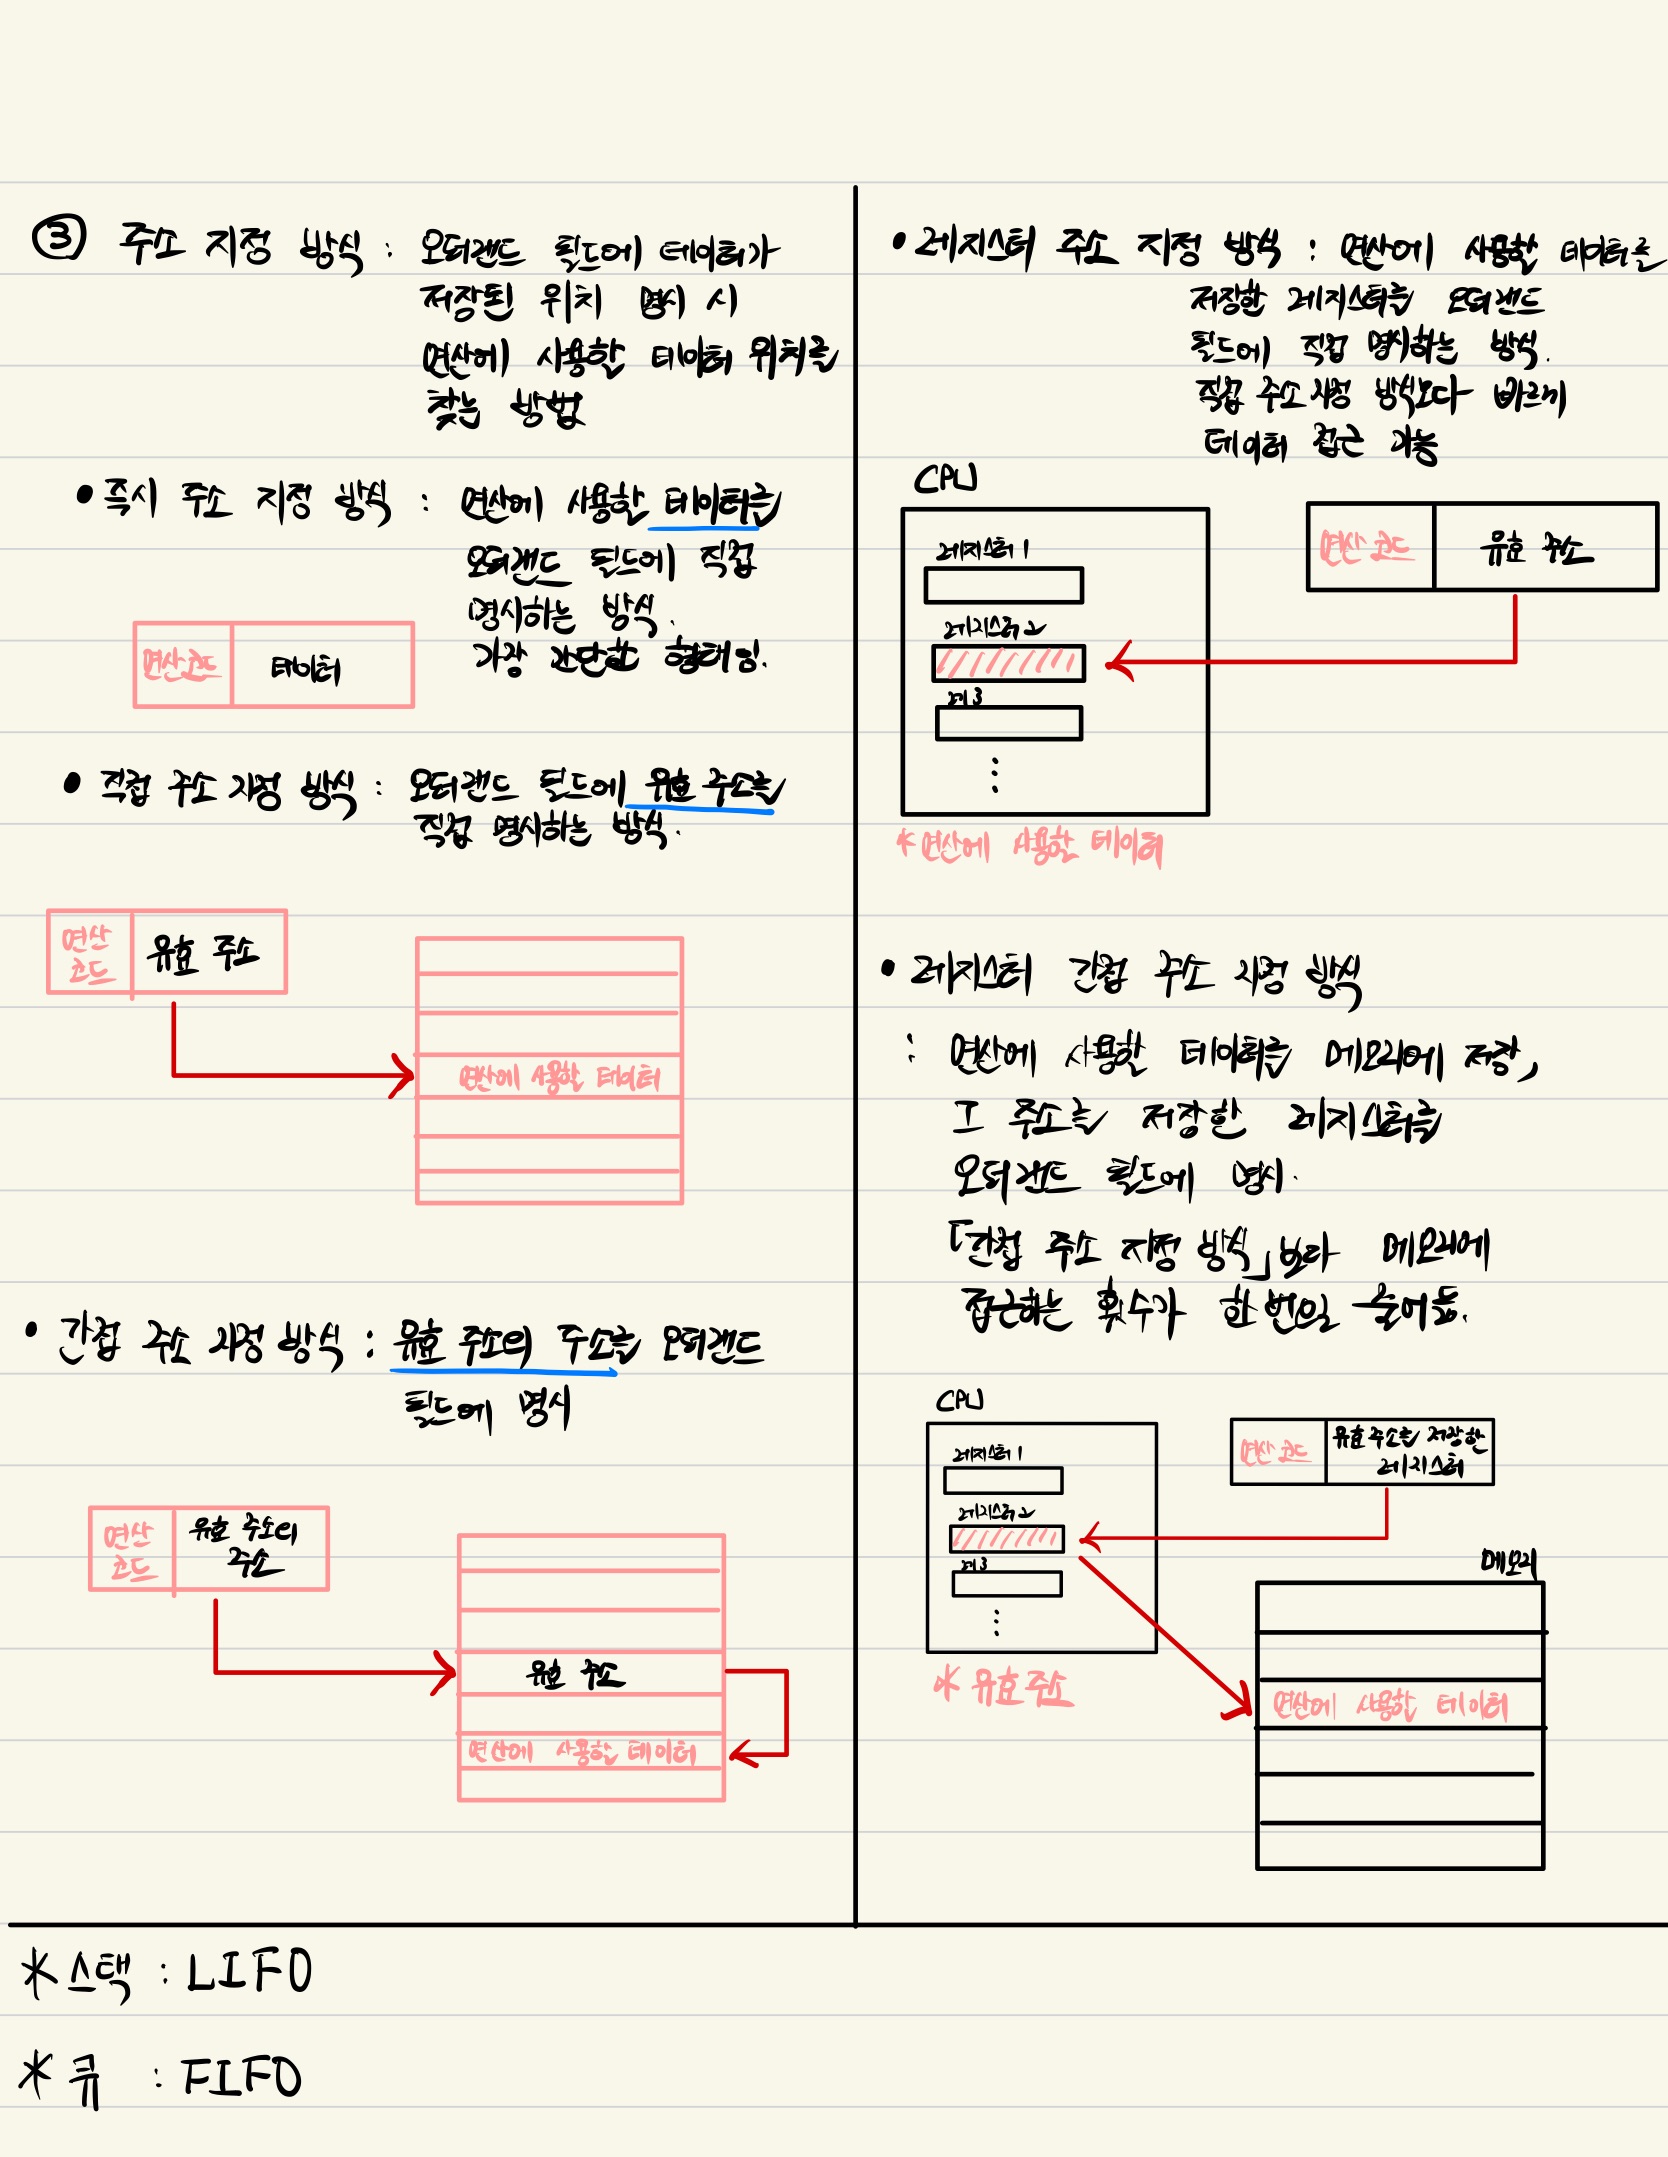 ③ 주소 지정 방식 : 오퍼랜드 필드에 데이터가
저장된 위치 명시 시
연산에 사용할 데이터 위치를
찾는 방법
• 즉시 주소 지정 방식 : 연산에 사용할 데이터를
오퍼랜드 필드에 직접
명시하는 방식.
가장 간단한 형태임.
연산코드
데이터
• 직접 주소 지정 방식 : 오퍼랜드 필드에 유효 주소를
직접 명시하는 방식.
연산
코드
유효 주소
연산에 사용할 데이터
• 간접 주소 지정 방식 : 유효 주소의 주소를 오퍼랜드
필드에 명시
연산
코드
유효 주소의
주소
유효 주소
연산에 사용할 데이터
• 레지스터 주소 지정 방식 : 연산에 사용할 데이터를
저장한 레지스터를 오퍼랜드
필드에 직접 명시하는 방식.
직접 주소 지정 방식보다 빠르게
데이터 접근 가능
CPU
레지스터 1
레지스터 2
레 3
⋮
연산 코드
유효 주소
* 연산에 사용할 데이터
• 레지스터 간접 주소 지정 방식
: 연산에 사용할 데이터를 메모리에 저장,
그 주소를 저장한 레지스터를
오퍼랜드 필드에 명시.
「간접 주소 지정 방식」보다 메모리에
접근하는 횟수가 한 번으로 줄어듦.
CPU
레지스터 1
레지스터 2
레 3
⋮
연산 코드
유효 주소를 저장한
레지스터
메모리
연산에 사용할 데이터
* 유효 주소
* 스택 : LIFO
* 큐 : FIFO